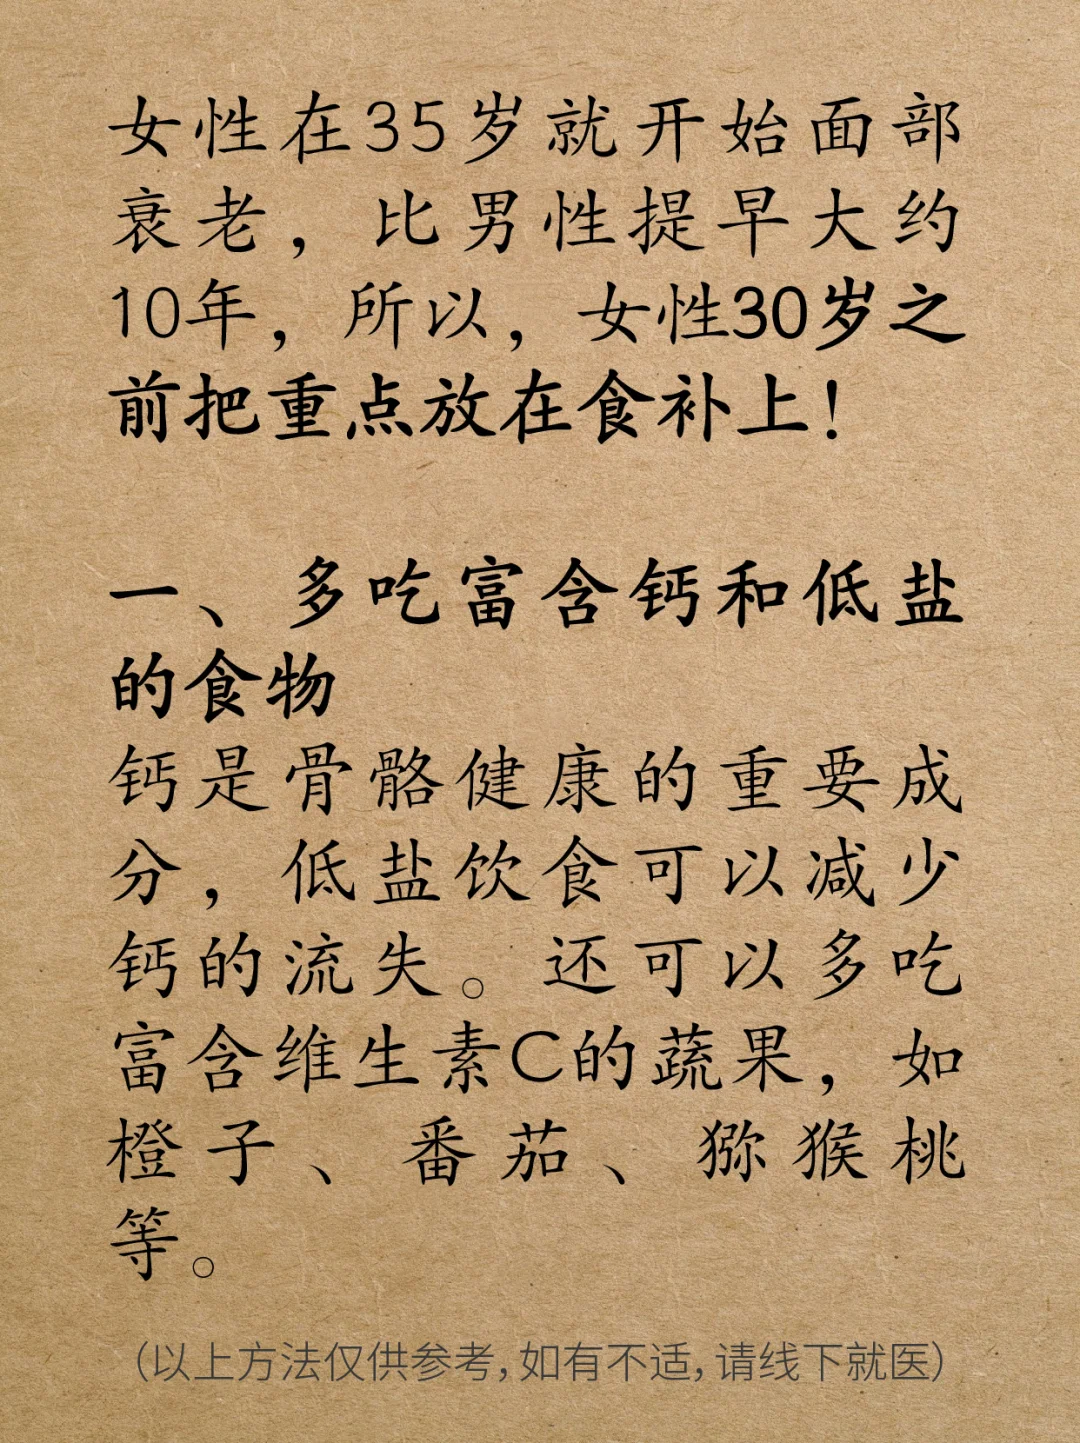 女性在35岁就开始面部
衰老，比男性提早大约
10年，所以，女性30岁之
前把重点放在食补上！
一、多吃富含钙和低盐
的食物
钙是骨骼健康的重要成
分，低盐饮食可以减少
钙的流失。还可以多吃
富含维生素C的蔬果，如
橙子、番茄、猕猴桃
等。
（以上方法仅供参考，如有不适，请线下就医）